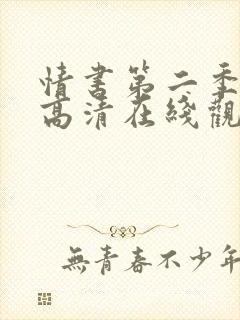 情書第二季
高清在綫觀
無青春不少年